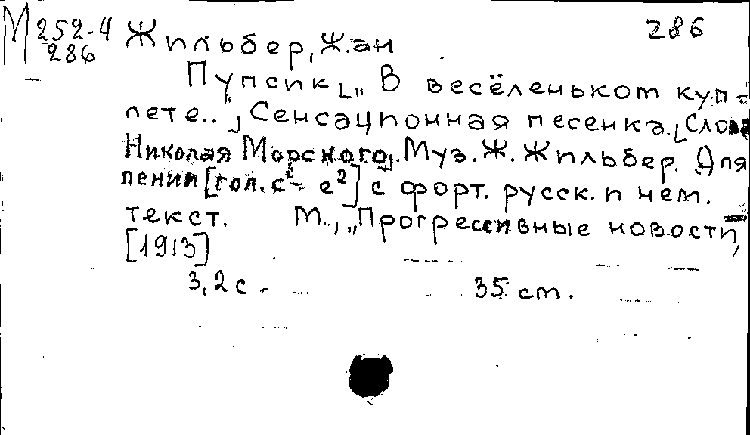 М 252-4 Жильбер, Жан 286
286
Пупсик [„В весёленьком куп-
лете.."] Сенсационная песенка. [Слова
Николая Морского]. Муз. Ж. Жильбер. Для
пения [гол. c¹- e²] с форт. русск. и нем.
текст. М., „Прогрессивные новости",
[1913]
3,2 с. 35 cm.